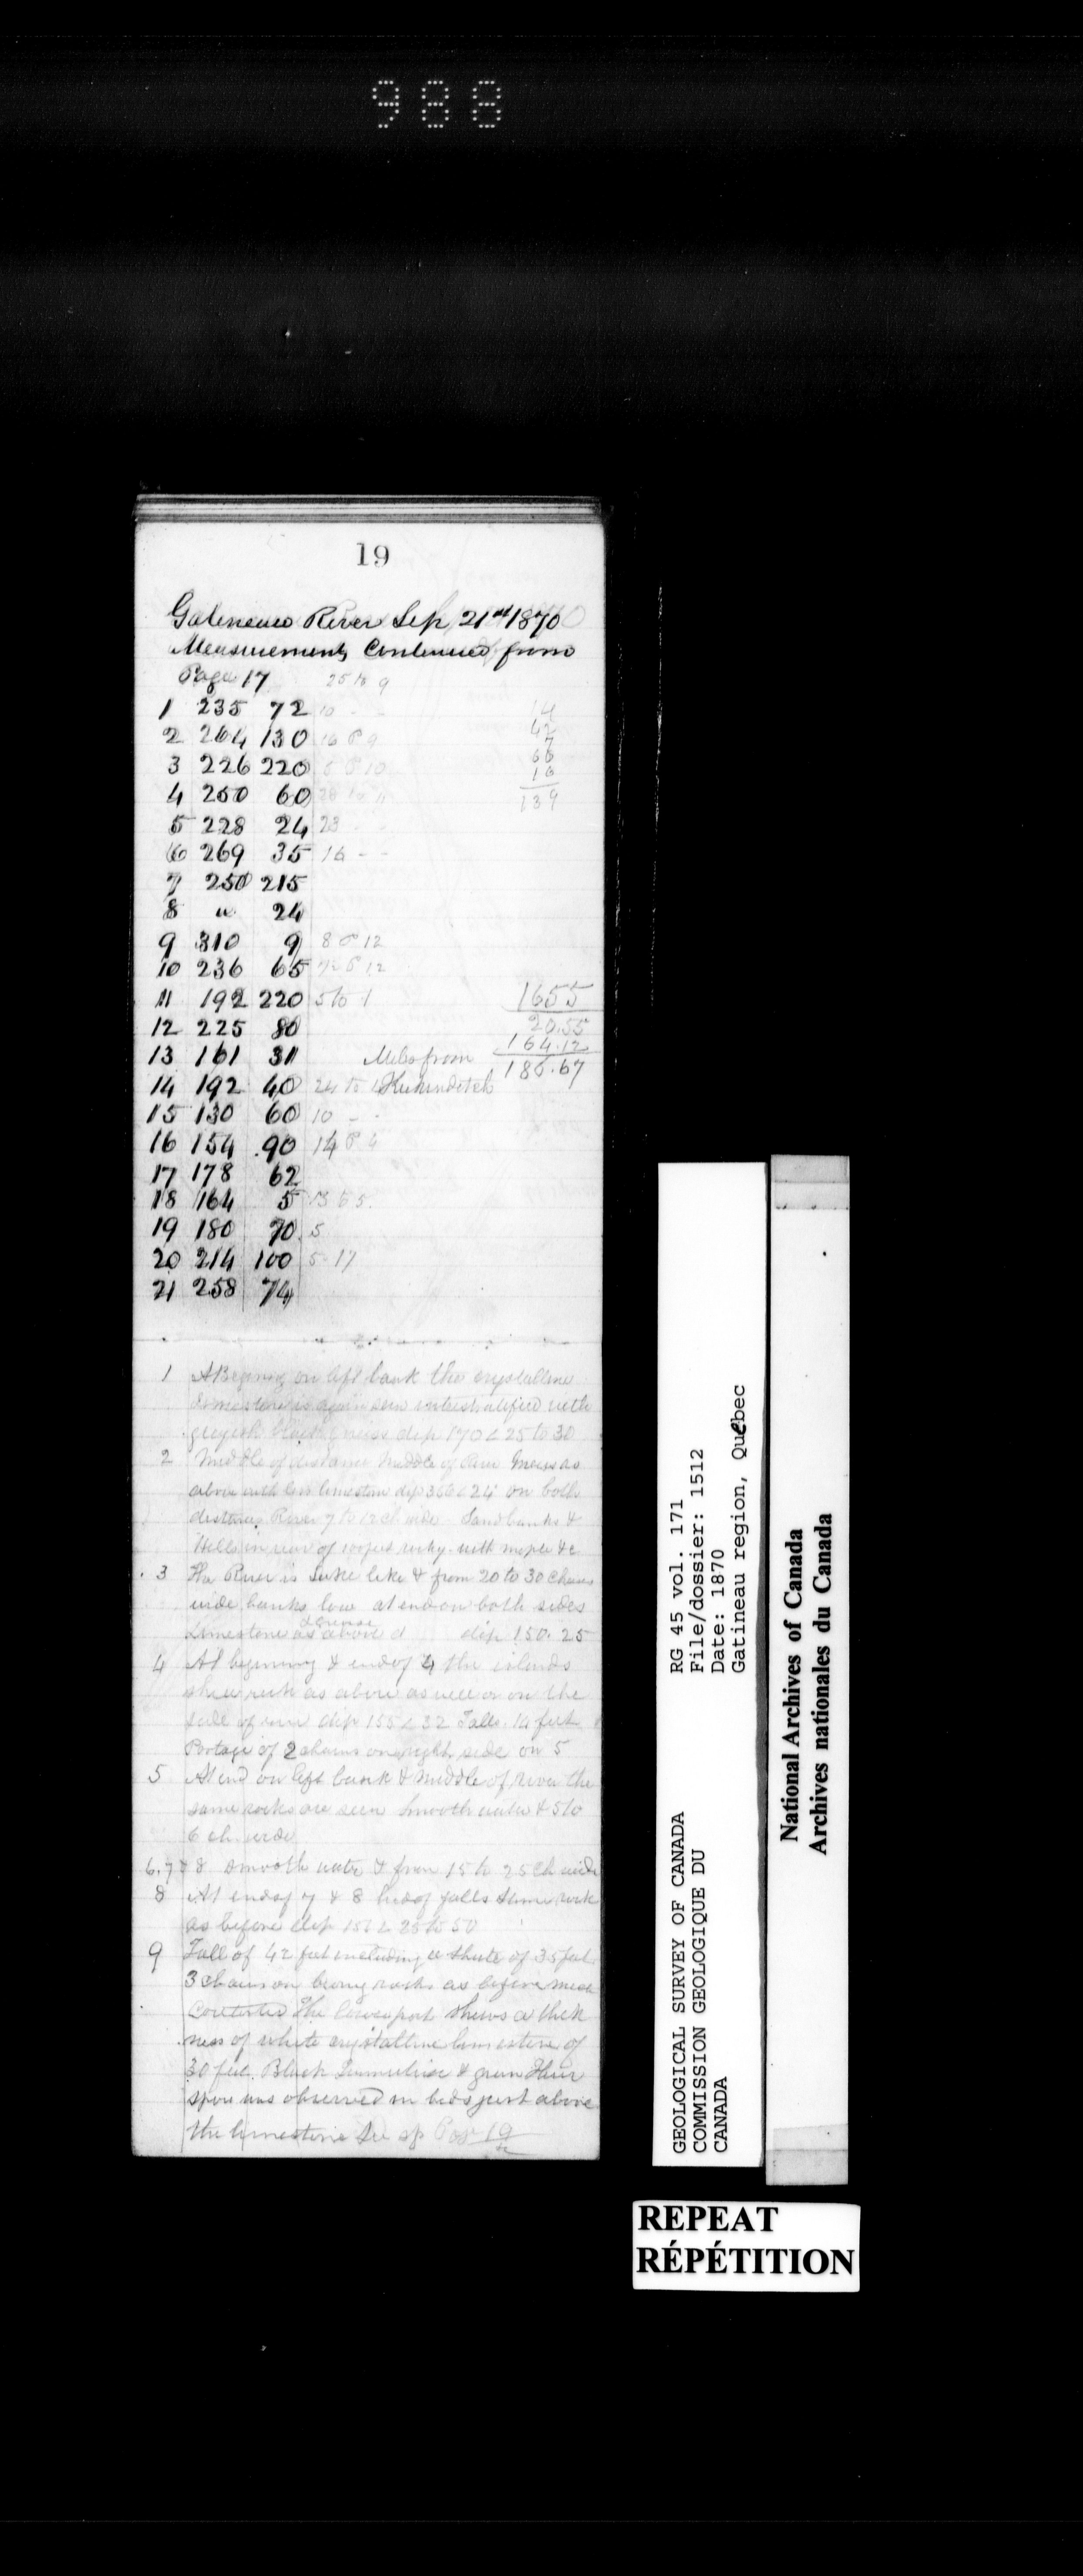 988
19
Gatineau River Sep 21st 1870
Measurements Continued from
Page 17 25 to 9
1 235 72 10 - -
2 264 130 16 9
3 226 220 10
4 250 60 11
5 228 24 23 - -
6 269 35 16 - -
7 250 215
8 " 24
9 310 9 8 12
10 236 65 12
11 192 220 5 to 1
12 225 80
13 161 31 Miles from
14 192 40 24 to
15 130 60 10 - -
16 154 90 14
17 178 62
18 164 5 13 5.
19 180 70 5
20 214 100 5-17
21 258 74
14
42
7
66
10
139
1655
20.55
164.12
186.67
1 At Begining on left bank the crystalline
limestone is again seen interstratified with
greyish black gneiss dip 170 < 25 to 30
2 Middle of distance Middle of river Gneiss as
above with less limestone dip < 24 on both
distances River 7 to 12 ch wide Sandbanks &
Hills in rear of rocky with maple &c
3 The River is Lake like & from 20 to 30 chains
wide banks low at end on both sides
Limestone as above dip 150. 25
4 At begining & end of 4 the islands
shew rock as above as well as on the
side of river dip 155 < 32 Falls 14 feet
Portage of 2 chains on right side on 5
5 At end on left bank & Middle of river the
same rocks are seen Smooth water & 5 to
6 ch wide
6.7 & 8 Smooth water & from 15 to 25 Ch wide
8 At end of 7 & 8 head of falls same rock
as before dip 25 to 50
9 Fall of 42 feet including a shute of 35 feet
3 chains on being rocks as before much
Contorted The lower part shews a thick
ness of white crystalline limestone of
30 feet. Black & green
spar was observed in beds just above
the limestone See sp 19
GEOLOGICAL SURVEY OF CANADA
COMMISSION GEOLOGIQUE DU
CANADA
RG 45 vol. 171
File/dossier: 1512
Date: 1870
Gatineau region, Québec
National Archives of Canada
Archives nationales du Canada
REPEAT
RÉPÉTITION